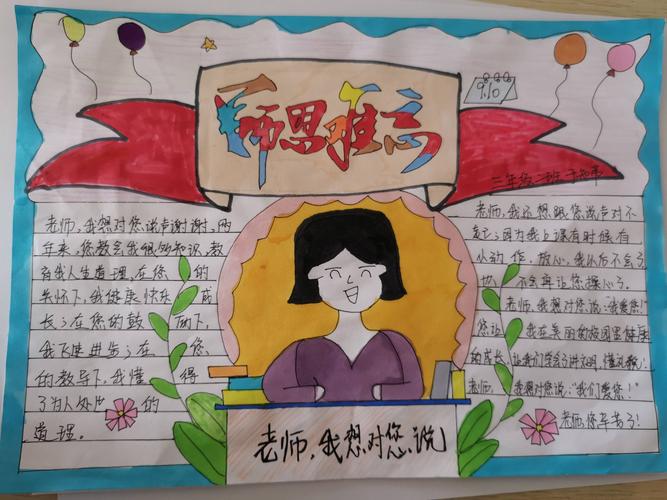 师恩难忘
9.10
三年级二班
老师，我想对您说声谢谢，两
年来，您教会我很多知识，教
育我人生道理，在您的
关怀下，我健康快乐成
长；在您的鼓励下，
我飞速进步；在您
的教导下，我懂得
了为人处世的
道理。
老师，我还想跟您说声对不
起，因为我上课有时候有
小动作，放心，我以后不会了
不会再让您操心了
老师，我想对您说：“我爱您！”
您让我在美丽的校园里健康
的成长，让我们学会了讲文明，懂礼貌！
老师，我想对您说：“我们爱您！”
老师，您辛苦了！
老师，我想对您说